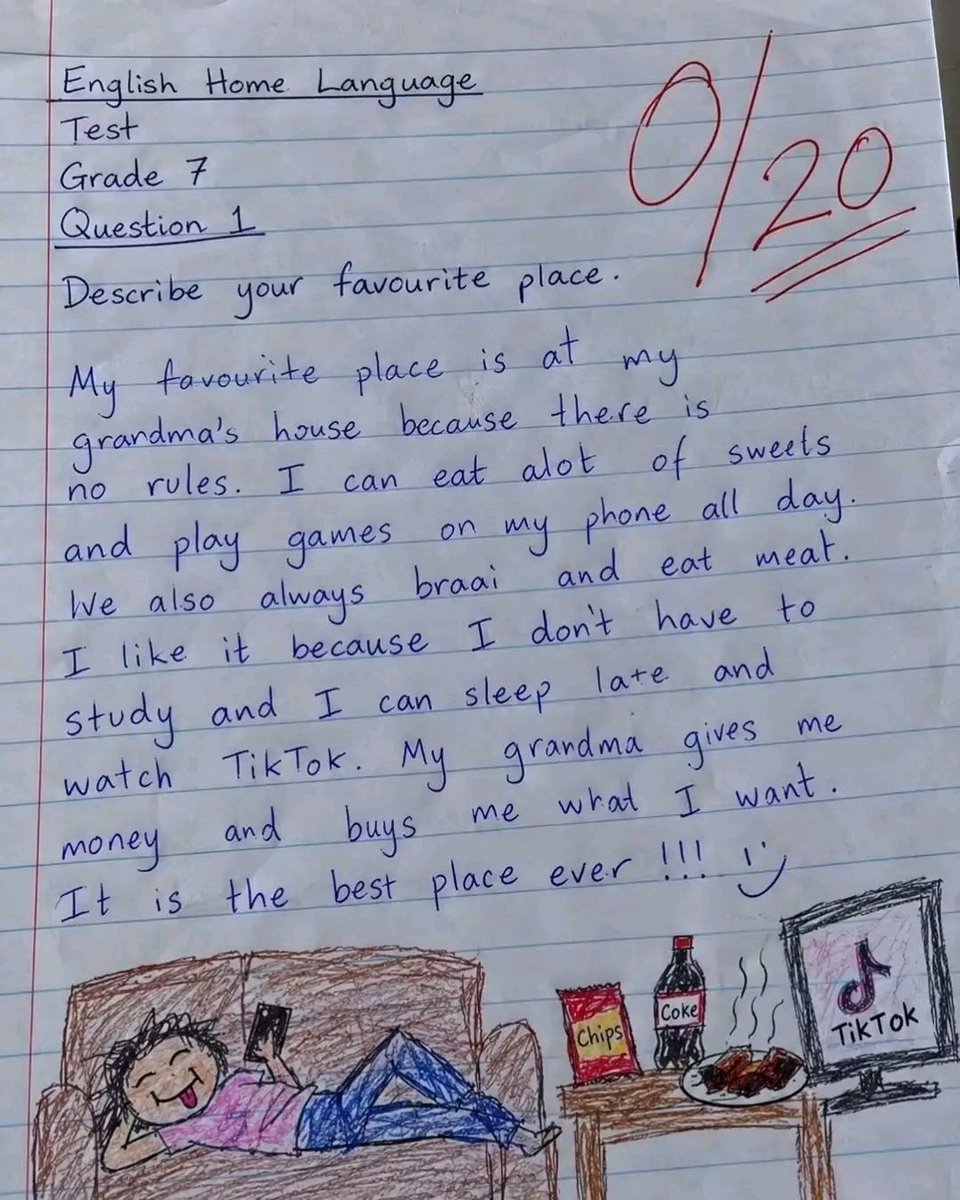 English Home Language
Test
Grade 7
Question 1
0/20
Describe your favourite place.
My favourite place is at my
grandma's house because there is
no rules. I can eat alot of sweets
and play games on my phone all day.
We also always braai and eat meat.
I like it because I don't have to
study and I can sleep late and
watch TikTok. My grandma gives me
money and buys me what I want.
It is the best place ever !!!
Chips
Coke
TikTok